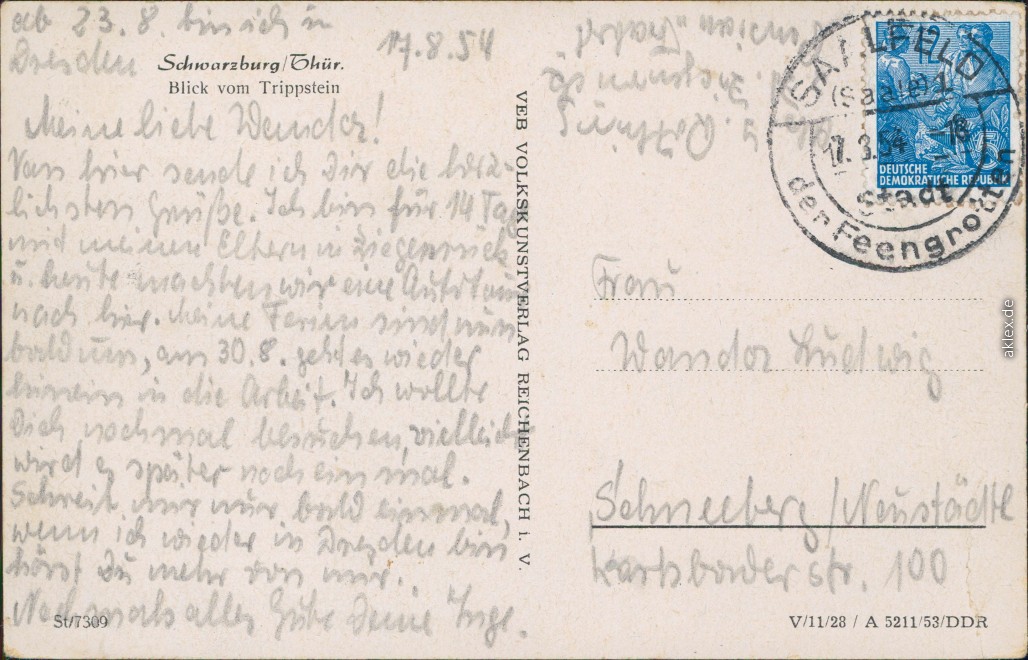 ab 23.8. bin ich in
Dresden
17.8.54
Schwarzburg/Thür.
Blick vom Trippstein
Meine liebe Wanda!
Von hier sende ich Dir die herz-
lichsten Grüße. Ich bin für 14 Tag
mit meinen Eltern in Ziegenrück
u. heute machten wir eine Autotour
nach hier. Meine Ferien sind nun
bald um, am 30.8. geht es wieder
hinein in die Arbeit. Ich wollte
Dich nochmal besuchen, vielleicht
wird es später noch einmal.
Schreib mir nur bald einmal,
wenn ich wieder in Dresden bin
hörst Du mehr von mir.
Nochmals alles Gute Deine Inge.
St/7309
VEB VOLKSKUNSTVERLAG REICHENBACH i. V.
Ziegenrück
SAALFELD
(Saale) 1
17.8.54 -18
Stadt
der Feengrotten
12
DEUTSCHE
DEMOKRATISCHE REPUBLIK
Frau
Wanda Ludwig
Schneeberg/Neustädtl
Karlsbaderstr. 100
V/11/28 / A 5211/53/DDR
aklex.de